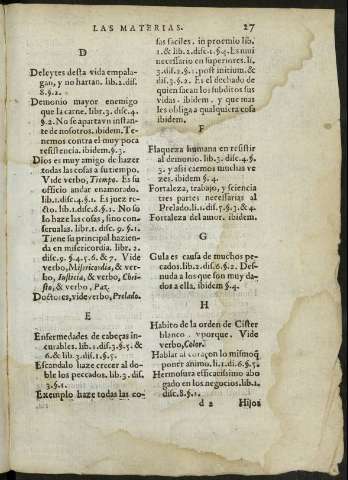 LAS MATERIAS. 27
D
Deleytes desta vida empala-
gan, y no hartan. lib. 2. dis.
8. §. 2.
Demonio mayor enemigo
que la carne. libr. 3. disc. 4.
§. 2. No se aparta vn instan-
te de nosotros. ibidem. Te-
nemos contra el muy poca
resistencia. ibidem. §. 3.
Dios es muy amigo de hazer
todas las cosas a su tiempo.
Vide verbo, Tiempo. Es su
officio andar enamorado.
lib. 1. disc. 4. §. 1. Es juez re-
cto. lib. 1. disc. 8. §. 2. No so
lo haze las cosas, sino con-
serualas. libr. 1. disc. 9. §. 1.
Tiene su principal hazien-
da en misericordia. libr. 2.
disc. 9. §. 4. 5. 6. & 7. Vide
verbo, Misericordia, & ver-
bo, Iusticia, & verbo, Chri-
sto, & verbo, Pax.
Doctores, vide verbo, Prelado.
E
Enfermedades de cabeças in-
curables. lib. 1. dis. 3. §. 5. &
6. & lib. 3. dis. 1. §. 5.
Escandalo haze crecer al do-
ble los peccados. lib. 3. dis.
3. §. 1.
Exemplo haze todas las co-
sas faciles. in proemio lib.
1. & lib. 2. disc. 1. §. 4. Es mui
necessario en superiores. li.
3. dis. 2. §. 1. post initium. &
dis. 3. §. 2. Es el dechado de
quien sacan los subditos sus
vidas. ibidem. y que mas
les obliga a qualquiera cosa
ibidem.
F
Flaqueza humana en resistir
al demonio. lib. 3. disc. 4. §.
3. y assi caemos muchas ve-
zes. ibidem §. 4.
Fortaleza, trabajo, y sciencia
tres partes necessarias al
Prelado. li. 1. dis. 5. §. 3. & 4.
Fortaleza del amor. ibidem.
G
Gula es causa de muchos pe-
cados. lib. 2. dis. 6. §. 2. Des-
nuda a los que son muy da-
dos a ella. ibidem §. 4.
H
Habito de la orden de Cister
blanco, y porque. Vide
verbo, Color.
Hablar al coraçon lo mismo q̃
poner animo. li. 1. di. 6. §. 5.
Hermosura efficacissimo abo
gado en los negocios. lib. 1.
disc. 8. §. 1.
d 2 Hijos